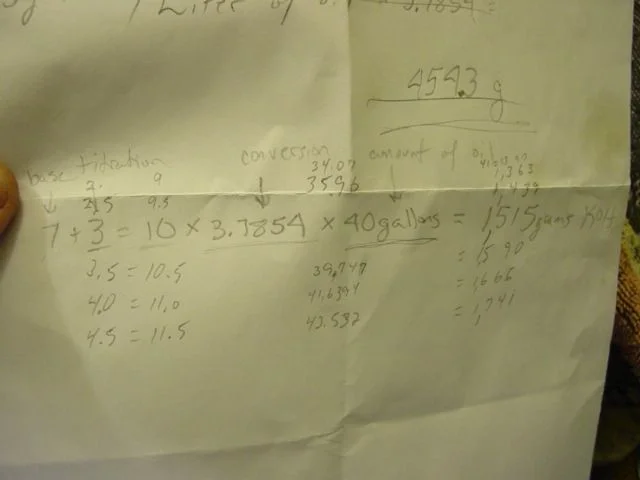 Liters of
4543 g
base titration conversion amount of oil
2. 9 34.07 1,363
2.5 9.5 35.96 1,439
7 + 3 = 10 × 3.7854 × 40gallons = 1,515 grams KOH
3.5 = 10.5 39.747 = 1,590
4.0 = 11.0 41.6394 = 1,666
4.5 = 11.5 43.532 = 1,741